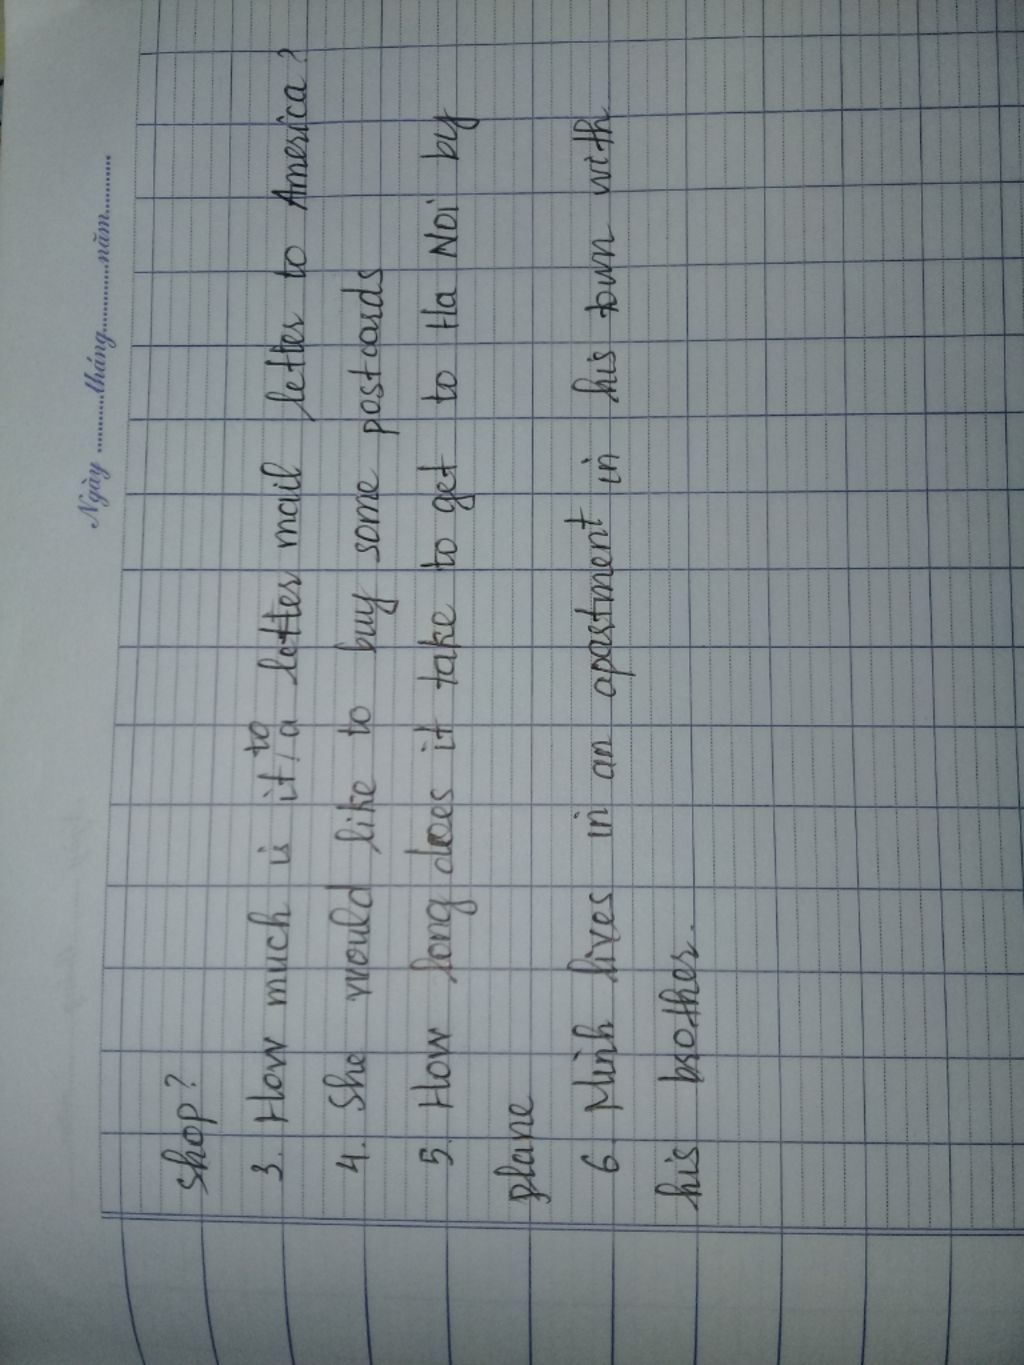 Ngày ..........tháng............năm...........
shop?
3. How much is it to a letter mail letter to America?
4. She would like to buy some postcards
5. How long does it take to get to Ha Noi by
plane
6. Minh lives in an apartment in his town with
his brother.